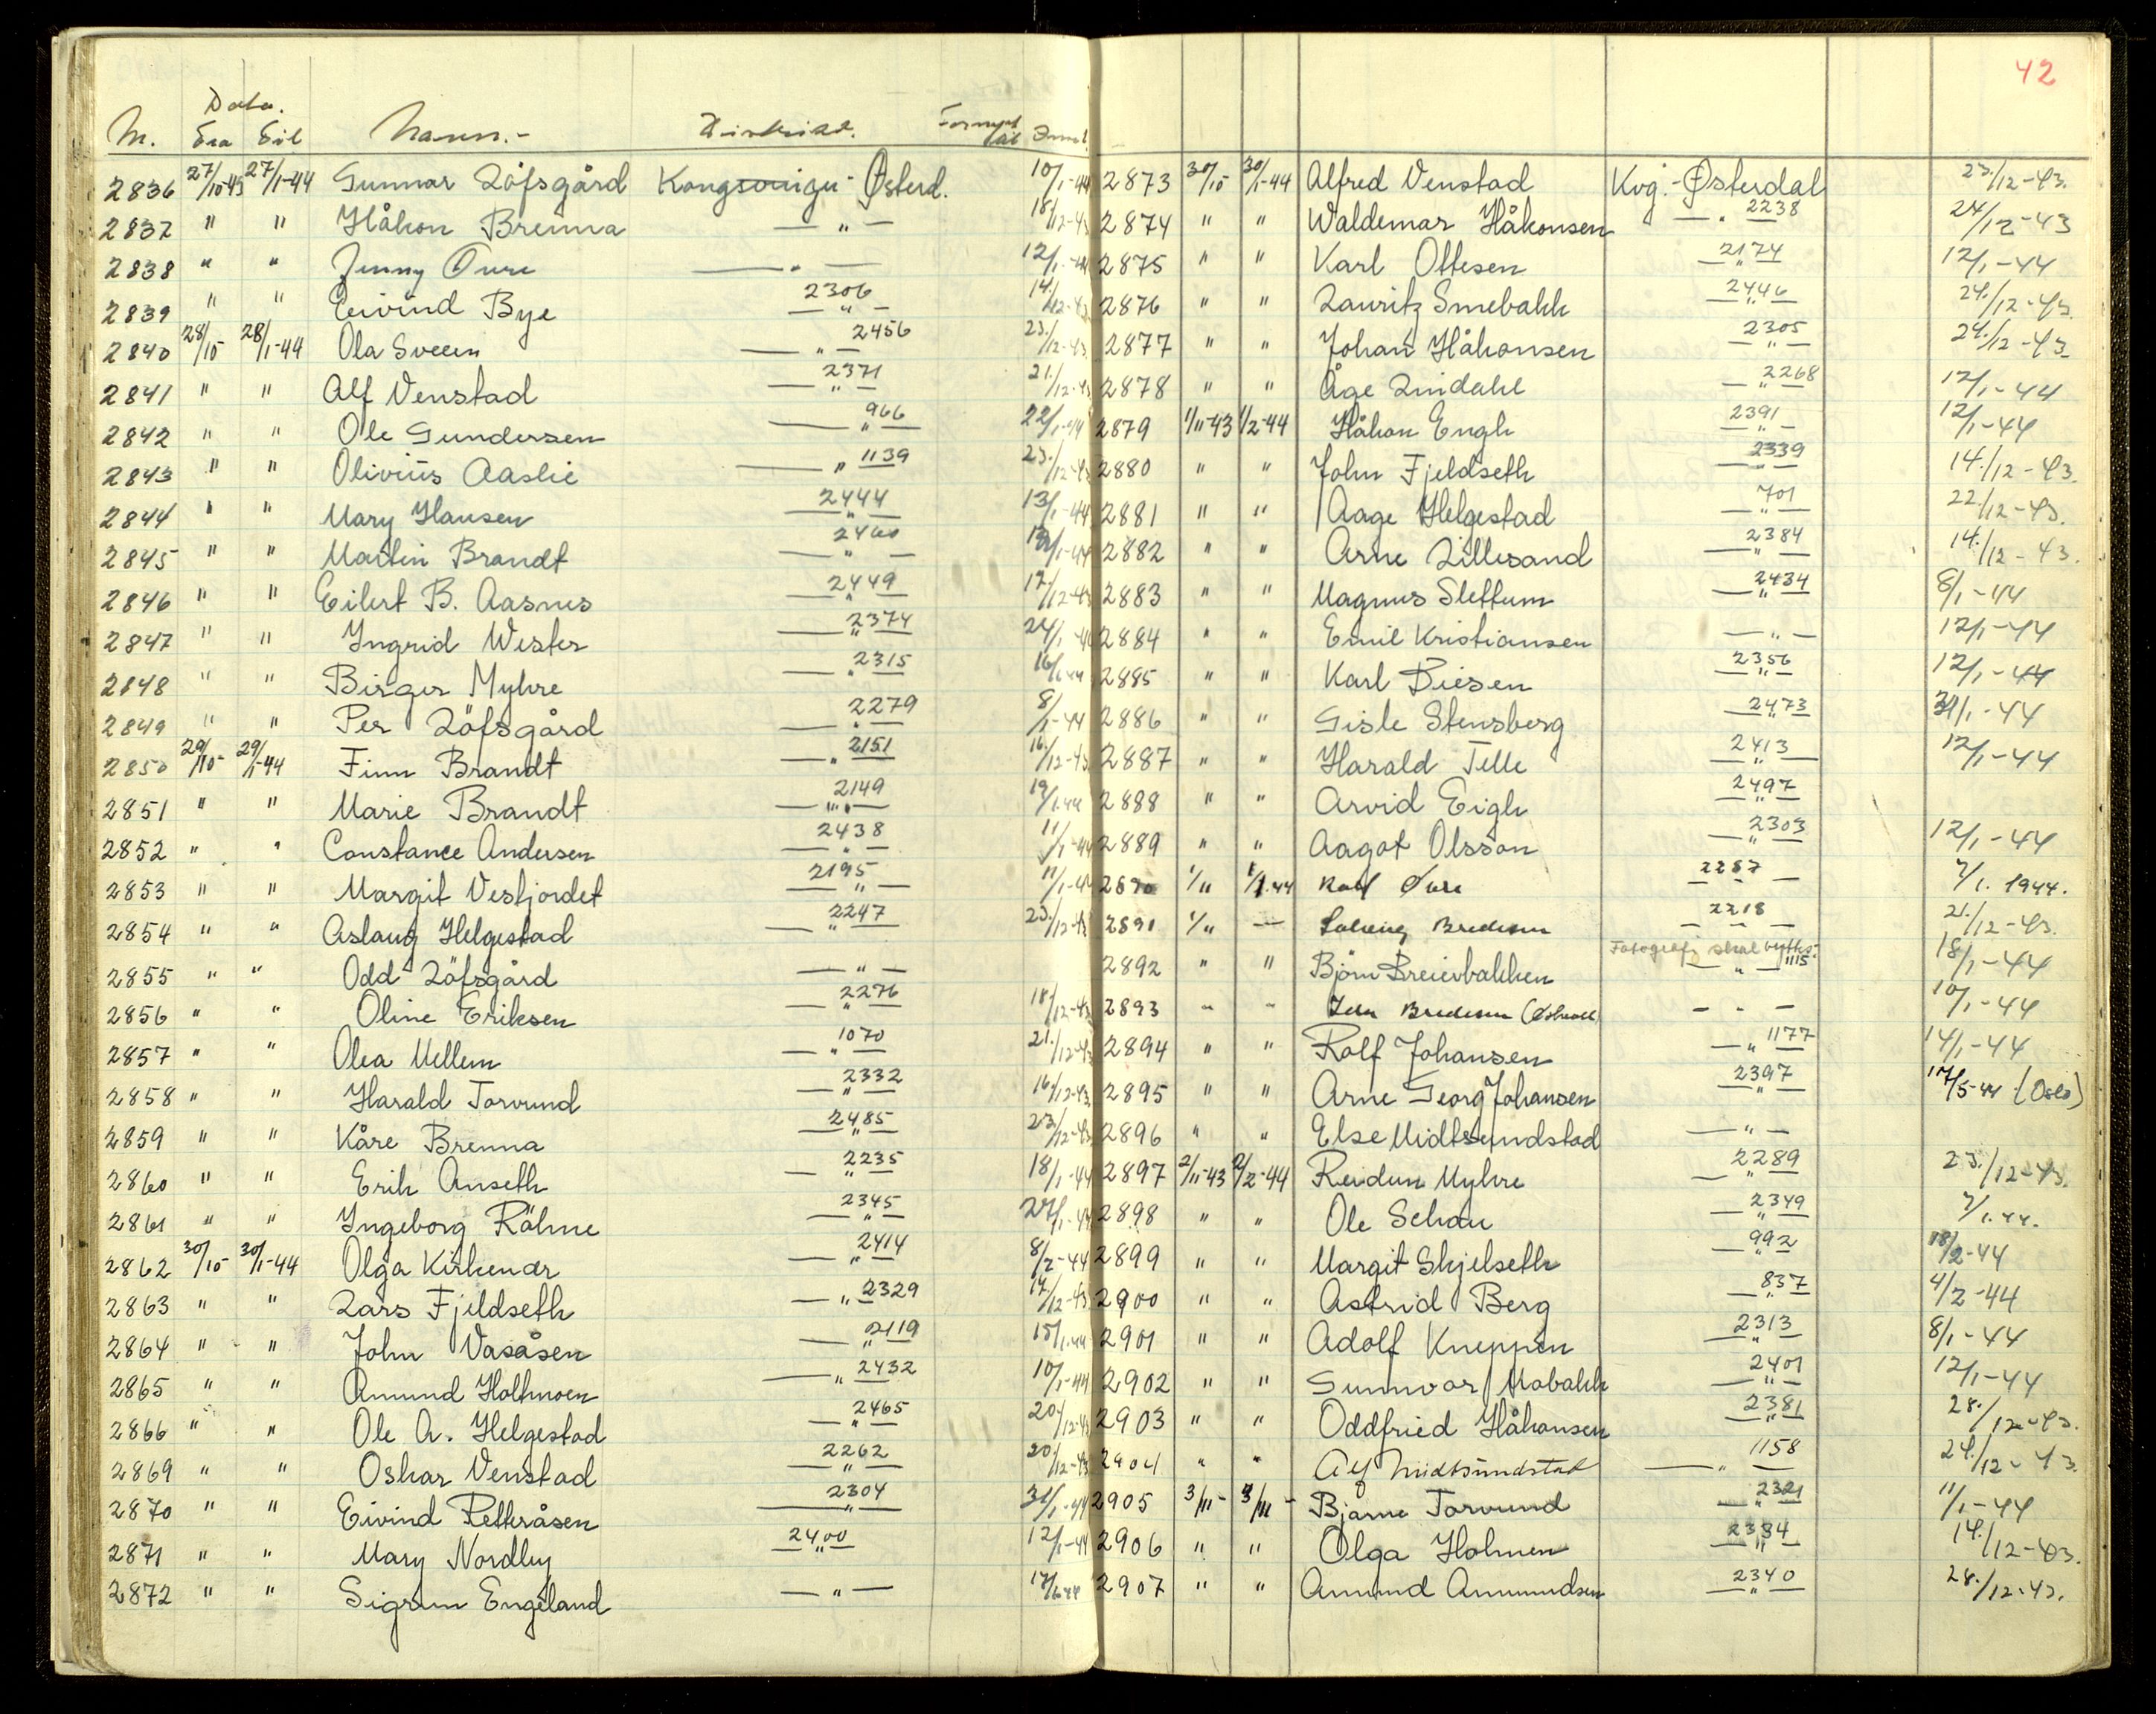 42
Dato.
Nr. Fra Til Navn.- Distrikt. Fornyet til Innl.
2836 27/10-43 27/1-44 Gunnar Löfsgård Kongsvinger- Østerd. 10/1-44
2837 " " Håkon Brenna — " — 18/12-43
2838 " " Jenny Øure — " — 12/1-44
2839 " " Eivind Bye 2306 — " — 14/12-43
2840 28/10 28/1-44 Ola Sveen — " — 2456 23/12-43
2841 " " Alf Venstad 2371 — " — 21/12-43
2842 " " Ole Gundersen 966 — " — 22/1-44
2843 " " Olivius Aaslie — " 1139 23/12-43
2844 " " Mary Hansen 2444 — " — 13/1-44
2845 " " Martin Brandt 2460 — " — /1-44
2846 " " Eilert B. Aasnes 2449 — " — 17/12-43
2847 " " Ingrid Wester 2374 — " — 24/1-44
2848 " " Birger Myhre 2315 — " — 16/1-44
2849 " " Per Löfsgård 2279 — " — 8/1-44
2850 29/10- 29/1-44 Finn Brandt 2151 — " — 16/12-43
2851 " " Marie Brandt 2149 — " — 19/1-44
2852 " " Constance Andersen 2438 — " — 11/1-44
2853 " " Margit Vestjordet 2195 — " — 11/1-44
2854 " " Aslaug Helgestad 2247 — " — 23/12-43
2855 " " Odd Löfsgård — " —
2856 " " Oline Eriksen 2276 — " — 18/12-43
2857 " " Olea Mellem 1070 — " — 21/12-43
2858 " " Harald Torvund 2332 — " — 16/12-43
2859 " " Kåre Brenna 2485 — " — 23/12-43
2860 " " Erik Anseth 2235 — " — 18/1-44
2861 " " Ingeborg Råhne 2345 — " — 27/1-44
2862 30/10 30/1-44 Olga Kirkenær 2414 — " — 8/2-44
2863 " " Lars Fjeldseth — " 2329 17/12-43
2864 " " John Vasåsen 2119 — " — 15/1-44
2865 " " Amund Holtmoen 2432 — " — 10/1-44
2866 " " Ole A. Helgestad 2465 — " — 20/12-43
2869 " " Oskar Venstad 2262 — " — 20/12-43
2870 " " Eivind Petteråsen 2304 — " — 31/1-44
2871 " " Mary Nordby 2400 — " — 12/1-44
2872 " " Sigrun Engeland — " —
2873 30/10 30/1-44 Alfred Venstad Kvg.-Østerdal 23/12-43.
2874 " " Waldemar Håkonsen — " 2238 24/12-43
2875 " " Karl Ottesen 2174 — " — 12/1-44
2876 " " Lauritz Smebakk 2446 — " — 24/12-43.
2877 " " Johan Håkonsen 2305 — " — 24/12-43.
2878 " " Åge Lindahl 2268 — " — 12/1-44
2879 1/11-43 1/2-44 Håkon Engh 2391 — " — 12/1-44
2880 " " John Fjeldseth 2339 — " — 14/12-43.
2881 " " Aage Helgestad 701 — " — 22/12-43.
2882 " " Arne Lillesand 2384 — " — 14/12-43.
2883 " " Magnus Slettum 2434 — " — 8/1-44
2884 " " Emil Kristiansen — " — 12/1-44
2885 " " Karl Biesen 2356 — " — 12/1-44
2886 " " Gisle Stensberg 2473 — " — 31/1-44
2887 " " Harald Telle 2413 — " — 12/1-44
2888 " " Arvid Eigh 2497 — " —
2889 " " Aagot Olsson 2303 — " — 12/1-44
2890 1/11 1/2.44 Karl Øure 2287 — — 7/1. 1944.
2891 1/11 — Solveig Bredesen 2218 — — 21/12-43.
2892 " " Björn Breierbakken Fotografi skal byttes. — " — 1115 18/1-44
2893 " " Bredesen - " - 10/1-44
2894 " " Rolf Johansen — " 1177 14/1-44
2895 " " Arne Georg Johansen 2397 — " — 17/5-44 (Oslo)
2896 " " Else Midtsundstad — " —
2897 2/11-43 2/2-44 Reidun Myhre 2289 — " — 23/12-43.
2898 " " Ole Schou 2349 — " — 7/1.44.
2899 " " Margit Skjelseth 992 — " — 18/2-44
2900 " " Astrid Berg 837 — " — 4/2-44
2901 " " Adolf Kneppen 2313 — " — 8/1-44
2902 " " Gunnvor Mobakk 2401 — " — 12/1-44
2903 " " Oddfried Håkansen 2381 — " — 28/12-43.
2904 " " Alf Midtsundstad 1158 — " — 24/12-43.
2905 3/11- 3/11- Bjarne Torvund 2321 — " — 11/1-44
2906 " " Olga Holmen 2334 — " — 14/12-43.
2907 " " Amund Amundsen 2340 — " — 28/12-43.